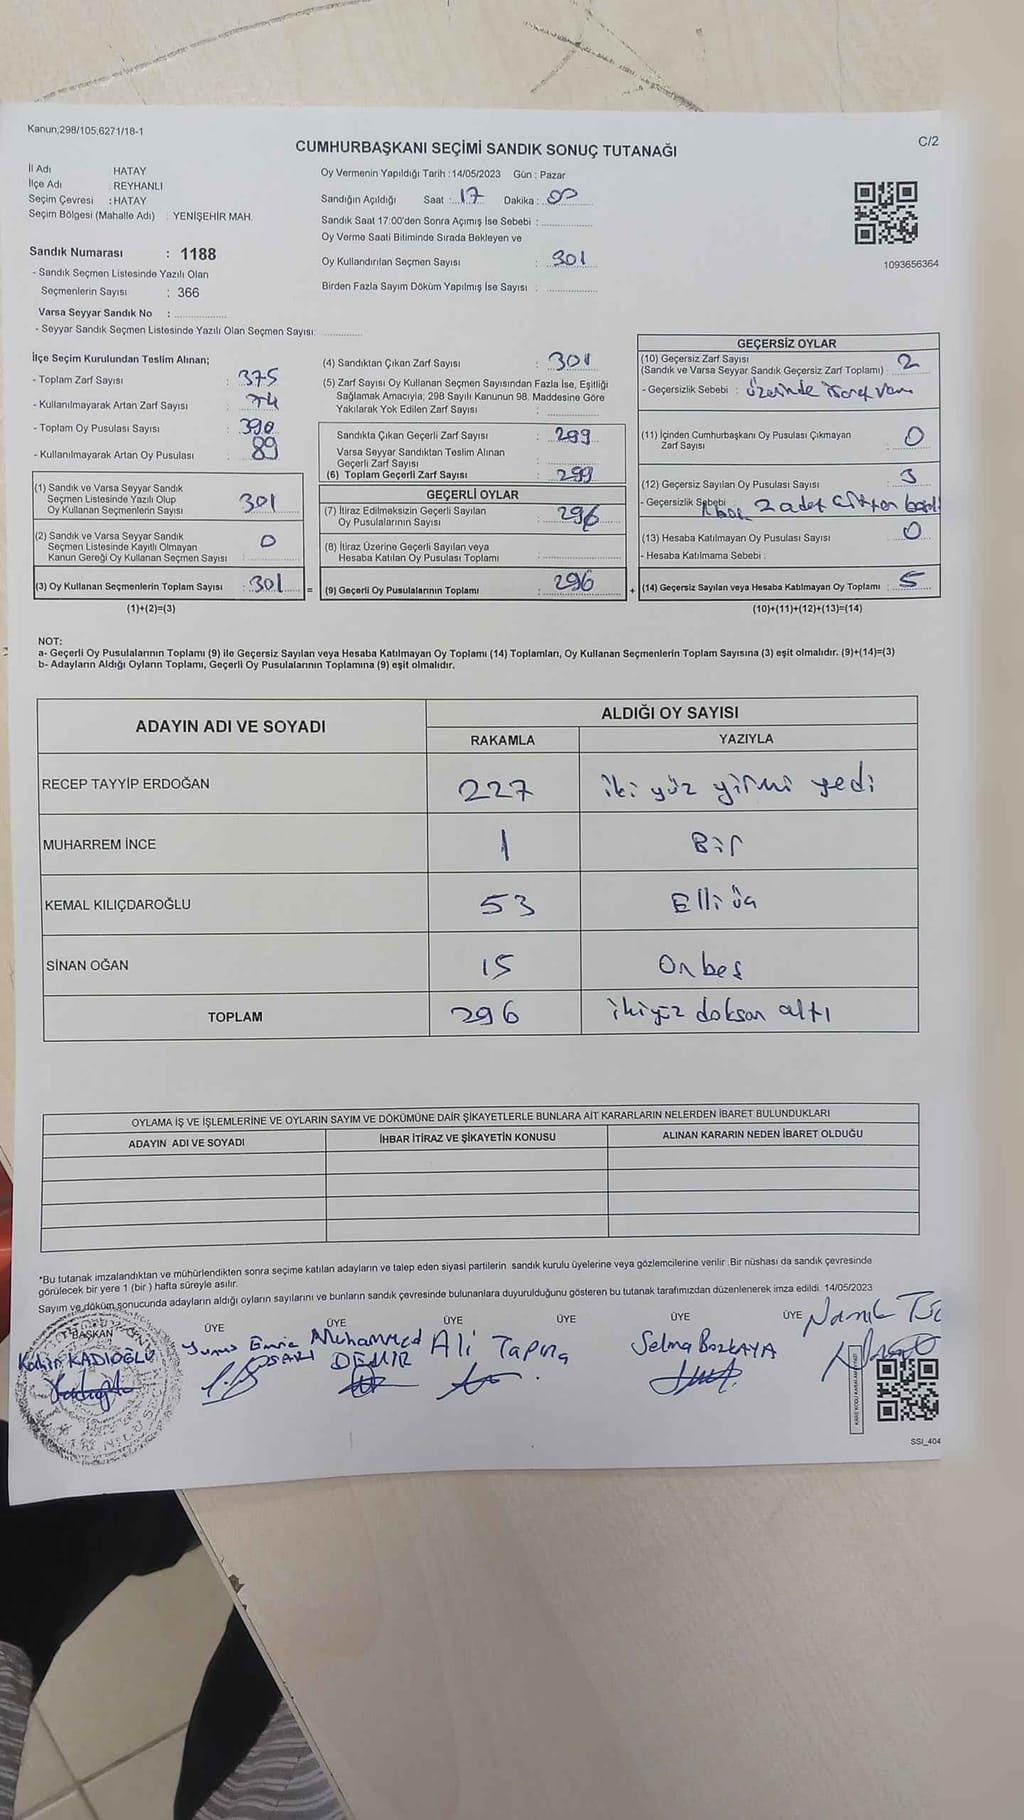 Kanun;298/105;6271/18-1
C/2
CUMHURBAŞKANI SEÇİMİ SANDIK SONUÇ TUTANAĞI
İl Adı HATAY
İlçe Adı : REYHANLI
Seçim Çevresi : HATAY
Seçim Bölgesi (Mahalle Adı) : YENİŞEHİR MAH.
Sandık Numarası : 1188
- Sandık Seçmen Listesinde Yazılı Olan
Seçmenlerin Sayısı : 366
Varsa Seyyar Sandık No :
- Seyyar Sandık Seçmen Listesinde Yazılı Olan Seçmen Sayısı:
Oy Vermenin Yapıldığı Tarih : 14/05/2023 Gün : Pazar
Sandığın Açıldığı Saat : 17 Dakika : 00
Sandık Saat 17:00'den Sonra Açımış İse Sebebi :
Oy Verme Saati Bitiminde Sırada Bekleyen ve
Oy Kullandırılan Seçmen Sayısı : 301
Birden Fazla Sayım Döküm Yapılmış İse Sayısı :
1093656364
İlçe Seçim Kurulundan Teslim Alınan;
- Toplam Zarf Sayısı : 375
- Kullanılmayarak Artan Zarf Sayısı : 74
- Toplam Oy Pusulası Sayısı : 390
- Kullanılmayarak Artan Oy Pusulası : 89
(1) Sandık ve Varsa Seyyar Sandık
Seçmen Listesinde Yazılı Olup
Oy Kullanan Seçmenlerin Sayısı 301
(2) Sandık ve Varsa Seyyar Sandık
Seçmen Listesinde Kayıtlı Olmayan
Kanun Gereği Oy Kullanan Seçmen Sayısı : 0
(3) Oy Kullanan Seçmenlerin Toplam Sayısı : 301 =
(1)+(2)=(3)
(4) Sandıktan Çıkan Zarf Sayısı : 301
(5) Zarf Sayısı Oy Kullanan Seçmen Sayısından Fazla İse, Eşitliği
Sağlamak Amacıyla, 298 Sayılı Kanunun 98. Maddesine Göre
Yakılarak Yok Edilen Zarf Sayısı :
Sandıkta Çıkan Geçerli Zarf Sayısı : 299
Varsa Seyyar Sandıktan Teslim Alınan
Geçerli Zarf Sayısı :
(6) Toplam Geçerli Zarf Sayısı : 299
GEÇERLİ OYLAR
(7) İtiraz Edilmeksizin Geçerli Sayılan
Oy Pusulalarının Sayısı : 296
(8) İtiraz Üzerine Geçerli Sayılan veya
Hesaba Katılan Oy Pusulası Toplamı :
(9) Geçerli Oy Pusulalarının Toplamı : 296 +
GEÇERSİZ OYLAR
(10) Geçersiz Zarf Sayısı
(Sandık ve Varsa Seyyar Sandık Geçersiz Zarf Toplamı) : 2
- Geçersizlik Sebebi : üzerinde işaret var
(11) İçinden Cumhurbaşkanı Oy Pusulası Çıkmayan
Zarf Sayısı : 0
(12) Geçersiz Sayılan Oy Pusulası Sayısı : 3
- Geçersizlik Sebebi 2 adet
(13) Hesaba Katılmayan Oy Pusulası Sayısı : 0
- Hesaba Katılmama Sebebi :
(14) Geçersiz Sayılan veya Hesaba Katılmayan Oy Toplamı : 5
(10)+(11)+(12)+(13)=(14)
NOT:
a- Geçerli Oy Pusulalarının Toplamı (9) ile Geçersiz Sayılan veya Hesaba Katılmayan Oy Toplamı (14) Toplamları, Oy Kullanan Seçmenlerin Toplam Sayısına (3) eşit olmalıdır. (9)+(14)=(3)
b- Adayların Aldığı Oyların Toplamı, Geçerli Oy Pusulalarının Toplamına (9) eşit olmalıdır.
ADAYIN ADI VE SOYADI ALDIĞI OY SAYISI
RAKAMLA YAZIYLA
RECEP TAYYİP ERDOĞAN 227 iki yüz yirmi yedi
MUHARREM İNCE 1 Bir
KEMAL KILIÇDAROĞLU 53 Elli üç
SİNAN OĞAN 15 Onbeş
TOPLAM 296 ikiyüz doksan altı
OYLAMA İŞ VE İŞLEMLERİNE VE OYLARIN SAYIM VE DÖKÜMÜNE DAİR ŞİKAYETLERLE BUNLARA AİT KARARLARIN NELERDEN İBARET BULUNDUKLARI
ADAYIN ADI VE SOYADI İHBAR İTİRAZ VE ŞİKAYETİN KONUSU ALINAN KARARIN NEDEN İBARET OLDUĞU
*Bu tutanak imzalandıktan ve mühürlendikten sonra seçime katılan adayların ve talep eden siyasi partilerin sandık kurulu üyelerine veya gözlemcilerine verilir. Bir nüshası da sandık çevresinde
görülecek bir yere 1 (bir) hafta süreyle asılır.
Sayım ve döküm sonucunda adayların aldığı oyların sayılarını ve bunların sandık çevresinde bulunanlara duyurulduğunu gösteren bu tutanak tarafımızdan düzenlenerek imza edildi. 14/05/2023
BAŞKAN ÜYE ÜYE ÜYE ÜYE ÜYE ÜYE
Kadir KADIOĞLU
Yunus Emre SARI
Muhammed DEMİR
Ali Tapna
Selma BOZKAYA
Namık
SSI_404